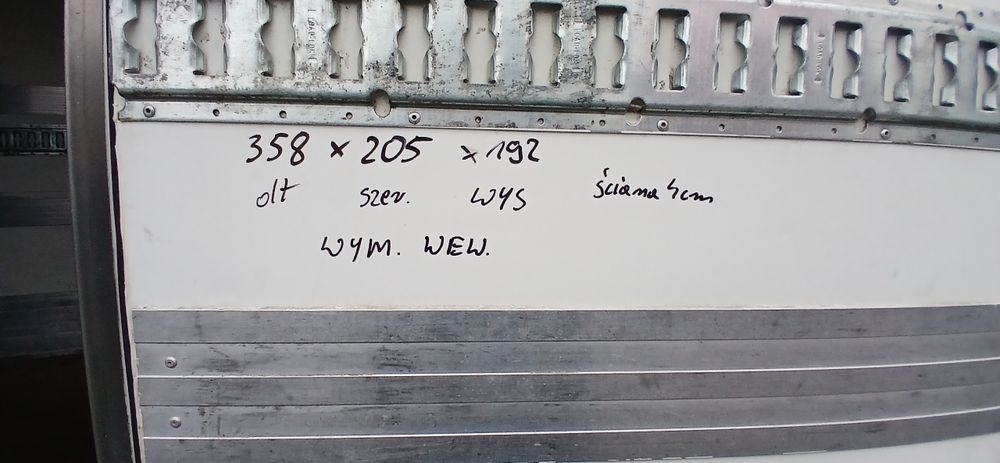 358 × 205 × 192
dłt szer. wys ściana 4cm
WYM. WEW.